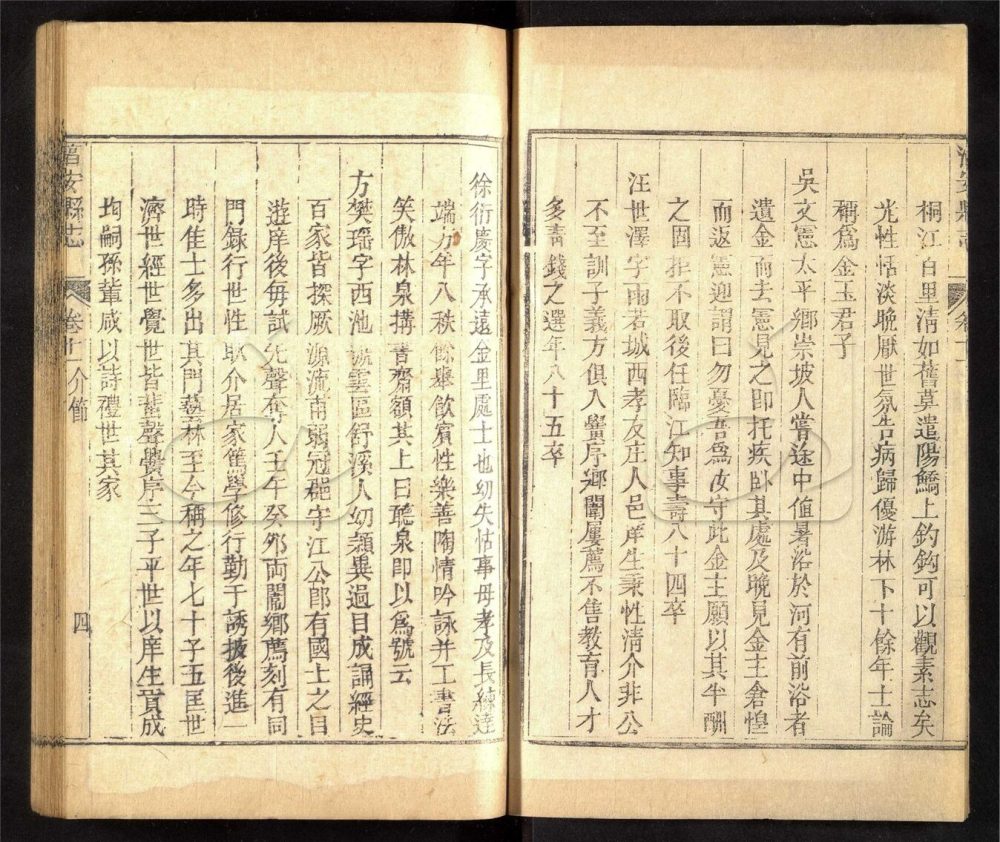 桐江白里清如舊莫遣陽鱎上釣鈎可以觀素志矣
光性恬淡晚厭世氛告病歸優游林下十餘年士論
稱爲金玉君子
吳文憲太平鄉崇坡人嘗途中值暑浴於河有前浴者
遺金而去憲見之即托疾卧其處及晚見金主倉惶
而返憲迎謂曰勿憂吾爲汝守此金主願以其半酬
之固拒不取後任臨江知事壽八十四卒
汪世澤字雨若城西孝友庄人邑庠生秉性清介非公
不至訓子義方俱入黌序鄉闈屢薦不售教育人才
多靑錢之選年八十五卒
徐衍慶字承遠金里處士也幼失怙事母孝及長練達
端方年八秩餘舉飲賓性樂善陶情吟詠并工書法
笑傲林泉搆書齋額其上曰聽泉即以爲號云
方樊瑶字西池號雲區舒溪人幼穎異過目成誦經史
百家皆探厥源流甫弱冠郡守江公郎有國士之目
遊庠後每試先聲奪人壬午癸夘両闈鄉薦刻有同
門錄行世性耿介居家篤學修行勤于誘掖後進一
時佳士多出其門藝林至今稱之年七十子五匡世
濟世經世覺世皆蜚聲黌序三子平世以庠生貢成
均嗣孫輩咸以詩禮世其家
暜安縣志
卷十一介節
四